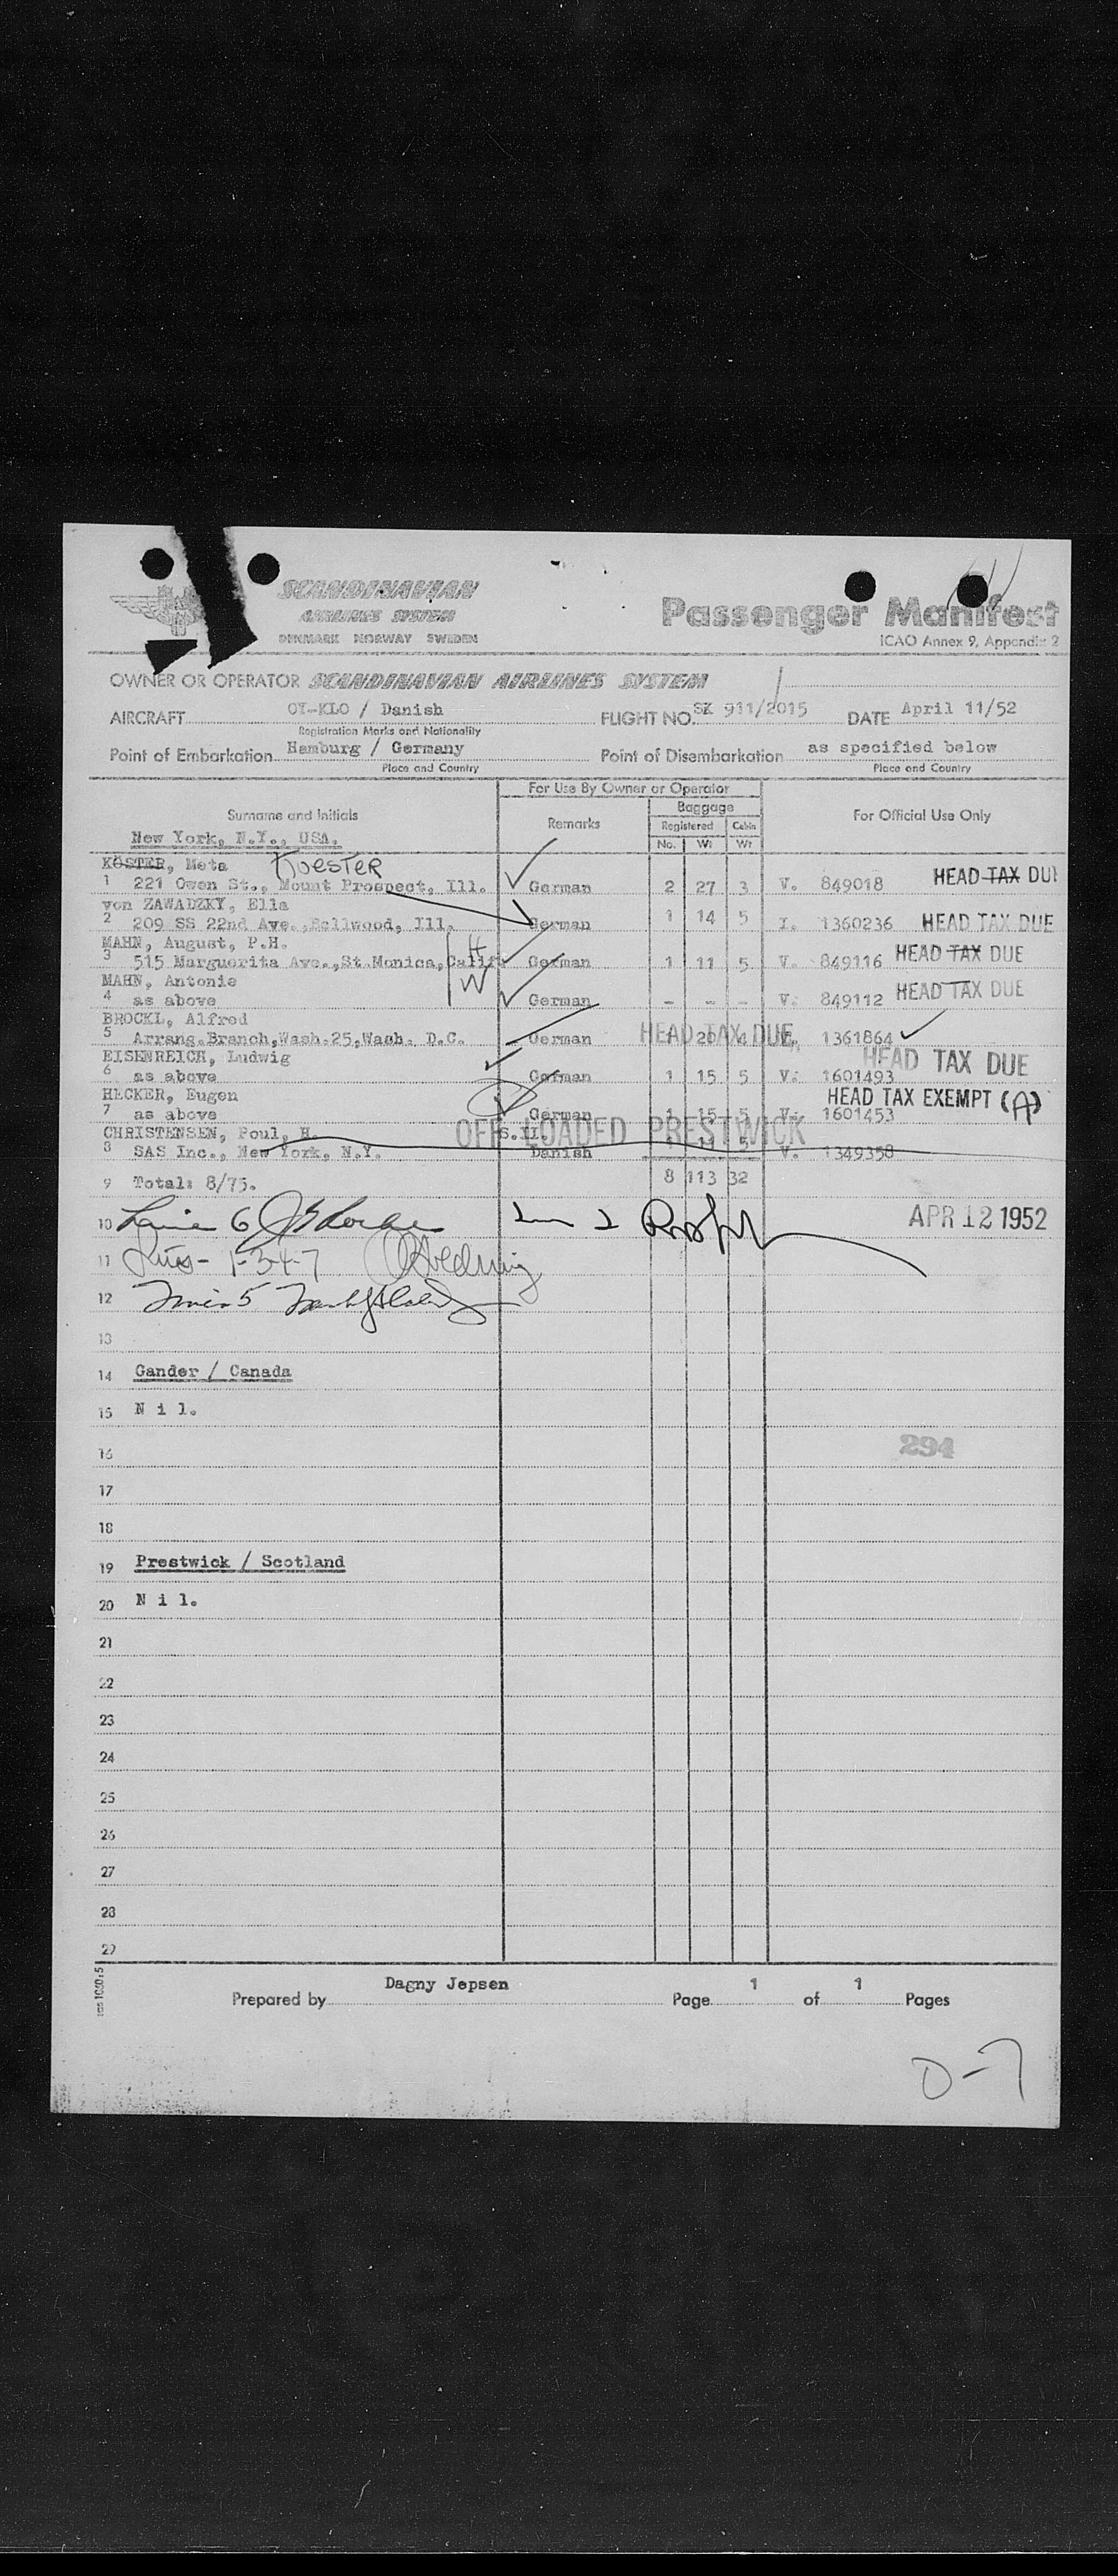 SCANDINAVIAN
AIRLINES SYSTEM
DENMARK NORWAY SWEDEN
Passenger Manifest
ICAO Annex 9, Appendix 2
OWNER OR OPERATOR SCANDINAVIAN AIRLINES SYSTEM
AIRCRAFT OY-KLO / Danish FLIGHT NO. SK 911/2015 DATE April 11/52
Registration Marks and Nationality
Point of Embarkation Hamburg / Germany Point of Disembarkation as specified below
Place and Country Place and Country
For Use By Owner or Operator
Surname and Initials Remarks Baggage For Official Use Only
Registered Cabin
No. Wt Wt
New York, N.Y., USA.
KÖSTER, Meta KOESTER
1 221 Owen St., Mount Prospect, Ill. German 2 27 3 V. 849018 HEAD TAX DUE
von ZAWADZKY, Ella
2 209 SS 22nd Ave., Bellwood, Ill. German 1 14 5 I. 1360236 HEAD TAX DUE
MAHN, August, P.H. H
3 515 Marguerita Ave.,St.Monica,Calif. German 1 11 5 V. 849116 HEAD TAX DUE
MAHN, Antonie W
4 as above German - - - V. 849112 HEAD TAX DUE
BROCKL, Alfred
5 Arrang.Branch,Wash.25,Wash. D.C. German HEAD TAX DUE 1361864
EISENREICH, Ludwig HEAD TAX DUE
6 as above German 1 15 5 V. 1601493
HECKER, Eugen HEAD TAX EXEMPT (A)
7 as above German 1 15 5 V. 1601453
CHRISTENSEN, Poul, H. OFF LOADED PRESTWICK
8 SAS Inc., New York, N.Y. Danish V. 1349358
9 Total: 8/75. 8 113 32
10 APR 12 1952
11 1-3-4-7
12
13
14 Gander / Canada
15 N i l.
16 294
17
18
19 Prestwick / Scotland
20 N i l.
21
22
23
24
25
26
27
28
29
Prepared by Dagny Jepsen Page 1 of 1 Pages
0-7